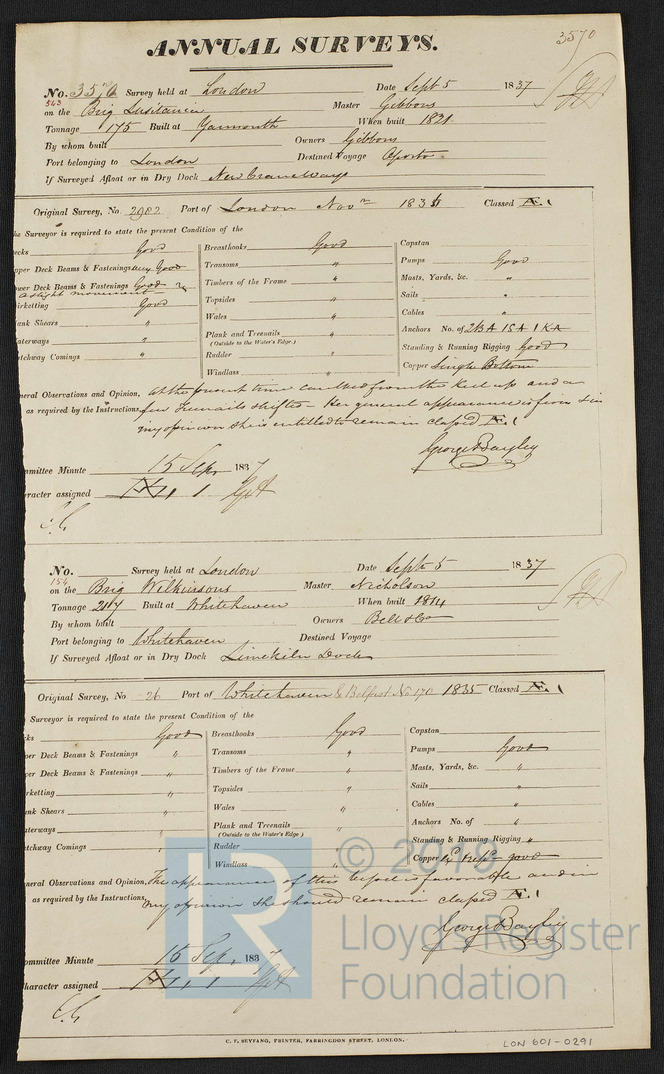 3570
ANNUAL SURVEYS.
No. 3570 Survey held at London Date Sept 5 1837
543
on the Brig Lusitania Master Gibbons
Tonnage 175 Built at Yarmouth When built 1821
By whom built Owners Gibbons
Port belonging to London Destined Voyage Oporto
If Surveyed Afloat or in Dry Dock New Crane Ways
Original Survey, No. 2982 Port of London Novr 183 Classed Æ. 1
he Surveyor is required to state the present Condition of the
ecks Good
pper Deck Beams & Fastenings very Good
wer Deck Beams & Fastenings Good
a slight movement
irketting Good
lank Shears "
aterways "
atchway Comings "
Breasthooks Good
Transoms "
Timbers of the Frame "
Topsides "
Wales "
Plank and Treenails "
(Outside to the Water's Edge.)
Rudder "
Windlass "
Capstan
Pumps Good
Masts, Yards, &c. "
Sails "
Cables "
Anchors No. of 2BA 1SA 1KA
Standing & Running Rigging Good
Copper Single Bottom
neral Observations and Opinion, At the present time caulked from the keel up and a
as required by the Instructions, few Treenails shifted - Her general appearance is firm & in
my opinion she is entitled to remain classed Æ. 1
George Bayley
mmittee Minute 15 Sep. 1837
aracter assigned Æ 1
No. Survey held at London Date Sept 5 1837
154
on the Brig Wilkinsons Master Nicholson
Tonnage 217 Built at Whitehaven When built 1814
By whom built Owners Bell & Co
Port belonging to Whitehaven Destined Voyage
If Surveyed Afloat or in Dry Dock Limekiln Dock
Original Survey, No 26 Port of Whitehaven & Belfast No 170 1835 Classed Æ. 1
Surveyor is required to state the present Condition of the
cks Good
per Deck Beams & Fastenings "
wer Deck Beams & Fastenings "
rketting "
ank Shears "
aterways "
atchway Comings "
Breasthooks Good
Transoms "
Timbers of the Frame "
Topsides "
Wales "
Plank and Treenails "
(Outside to the Water's Edge)
Rudder "
Windlass "
Capstan
Pumps Good
Masts, Yards, &c. "
Sails "
Cables "
Anchors No. of "
Standing & Running Rigging "
Copper good
neral Observations and Opinion, The appearance of this vessel is favorable and in
as required by the Instructions, my opinion she should remain classed Æ. 1
George Bayley
ommittee Minute 15 Sep. 1837
haracter assigned Æ 1
© 2019
LR
Lloyd's Register
Foundation
C. F. SEYFANG, PRINTER, FARRINGDON STREET, LONDON.
LON 601-0291